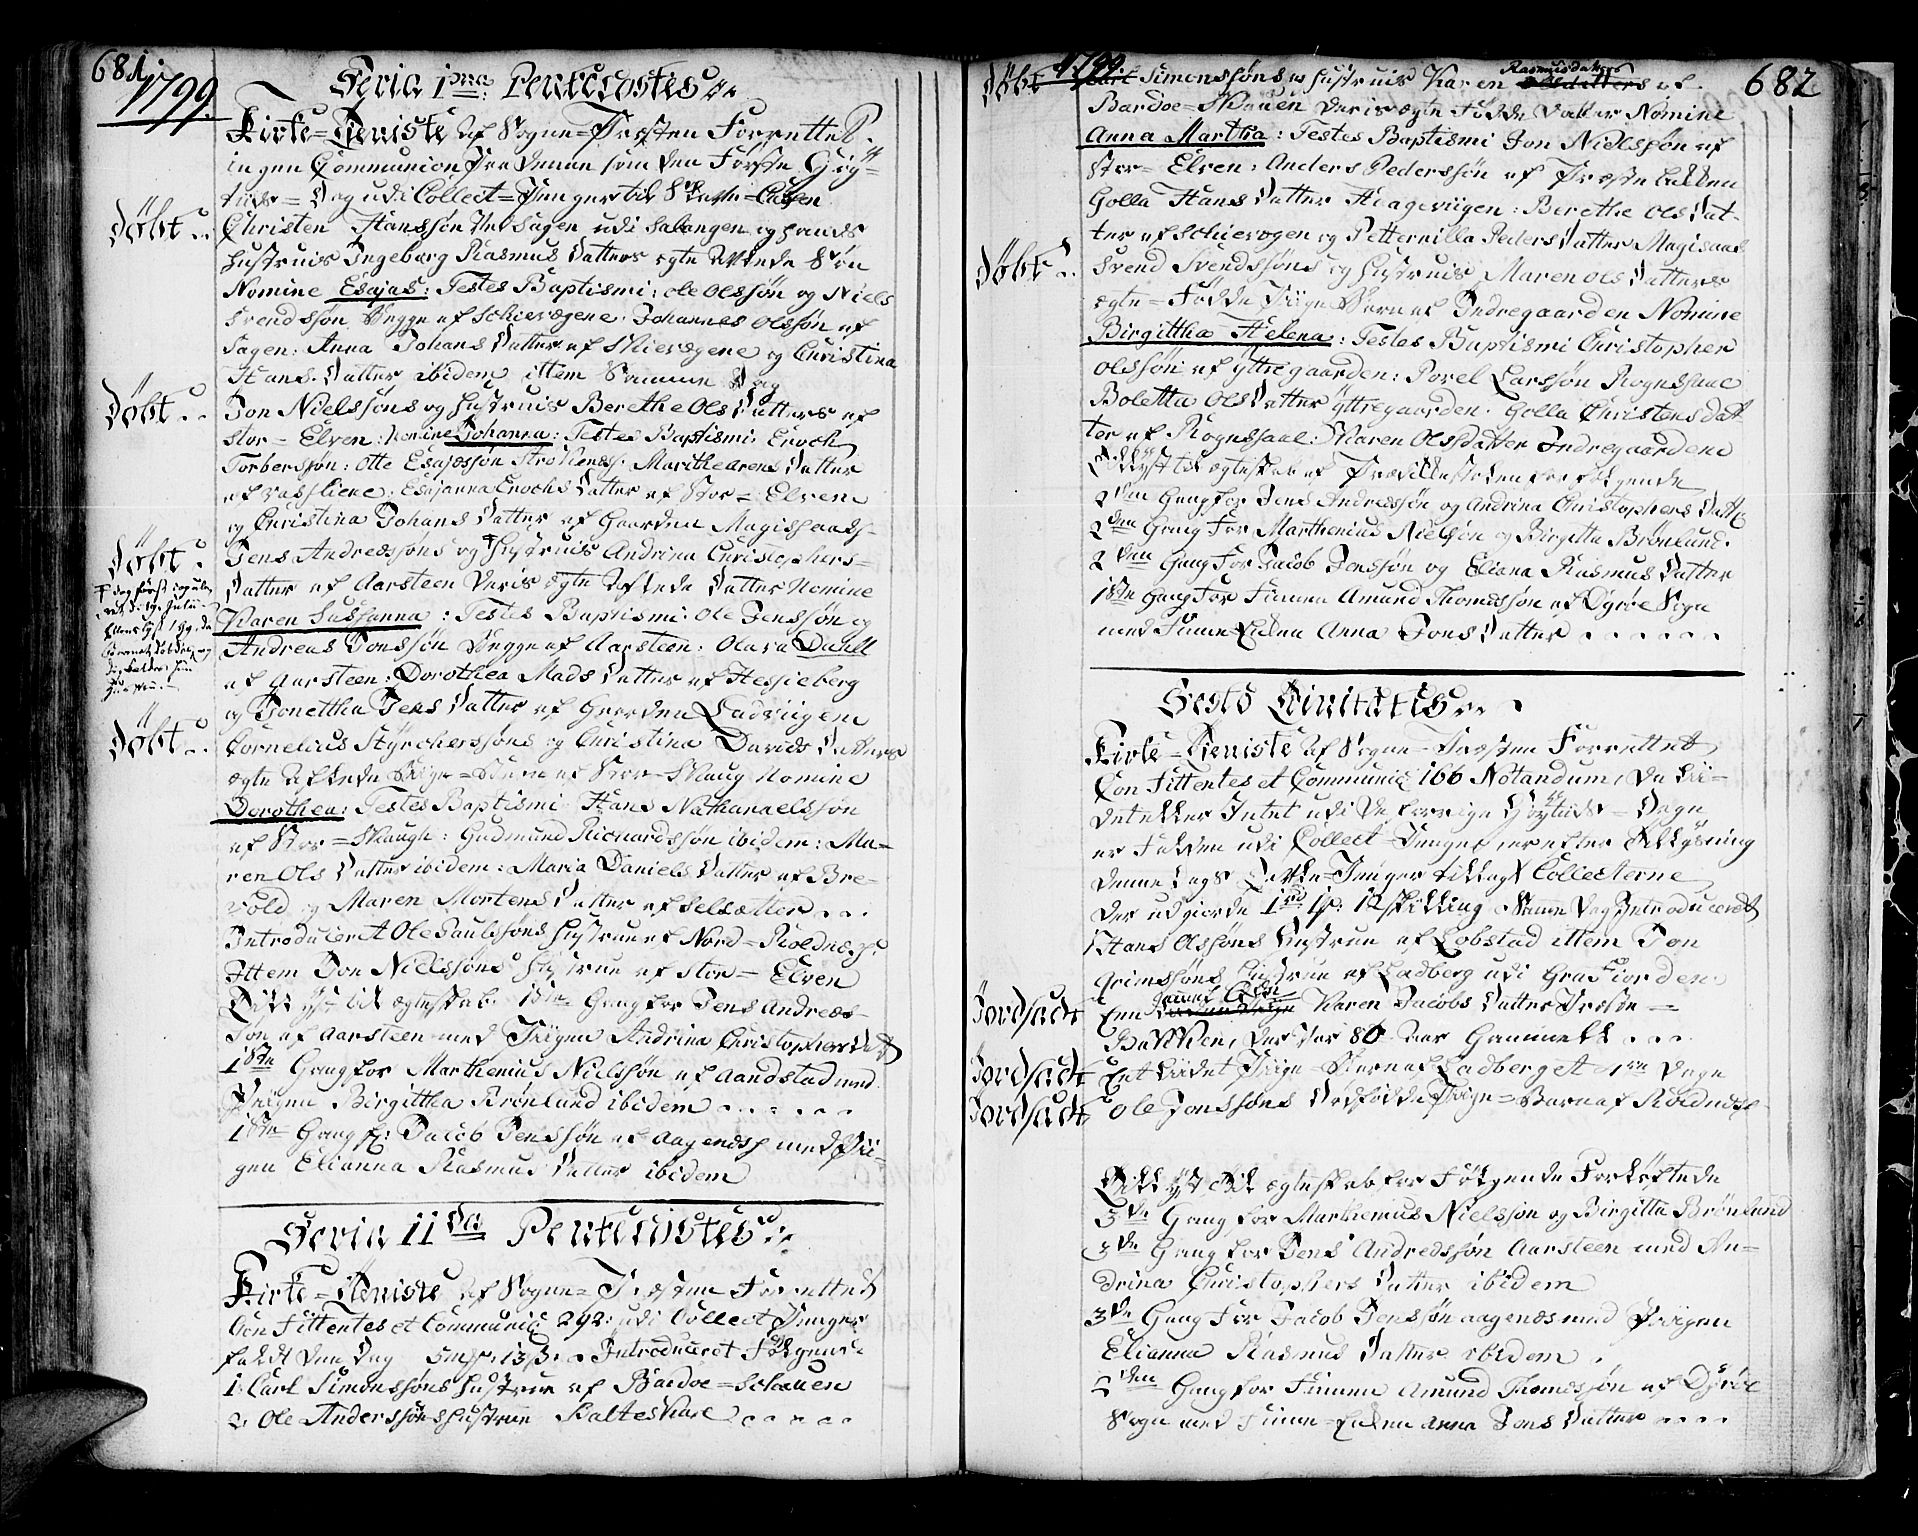 681.
1799.
Feria 1ma: Pentecostes
Kirke=Tieniste af Sogne=Præsten Forrettet.
ingen Communion paa denne som den Første Høy=
tiids=Dag udi Collect=Penger til
Døbt
Christen Hanssøn udi Salangen og hands
Hustrues Ingeborg Rasmus Datters ægte Søn
Nomine Esajas: Testes Baptismi: Ole Olssøn og Niels
Svendssøn Begge af Schievogene: Johannes Olssøn af
Anna Johans Datter af Skievogene og Christina
Hans Datter ibidem ittem Samme Dag
Døbt
Jon Nielssøns og Hustrues Berethe Ols Datters af
Stor=Elven: Nomine Johanna: Testes Baptismi: Enoch
Torberssøn: Otte Esajæssøn Marithe Arens Datter
af Esajanna Enochs Datter af Stor=Elven
og Christina Johans Datter af Gaarden Magissaads
Døbt
Jens Andreæssøns og Hustrues Andrina Christophers=
Datter af Aarsteen deris ægte Datter Nomine
Karen Sussanna: Testes Baptismi: Ole Jenssøn og
Andreas Jonssøn Begge af Aarsteen: Olava Dahll
af Aarsteen: Dorothea Mads Datter af Hessieberg
og Jonettha Jens Datter af Gaarden Ladviigen
Døbt
Cornelius Styrcherssøns og Christina Davids Datters
ægte Pige=Barn af Stor=Skaug Nomine
Dorothea: Testes Baptismi Hans Nathanaelssøn
af Stor=Skaugh: Gudmund Richardssøn ibidem: Ma=
ren Ols Datter ibidem: Maria Daniels Datter af Bre=
vold og Maren Mortens Datter af Selsætter
Introduceret Ole Paulssøns Hustrue af Nord=Roldnæs:
Ittem Jon Nielssøns Hustrue af Stor=Elven
Tillyst til ægteskab 1ste Gang for Jens Andreæs=
søn af Aarsteen med Pigen Andrina Christophers Datt
1ste Gang for Marthenius Nielssøn af Aandstad med
Piigen Birgittha Brønlund ibidem
1ste Gang for Jacob Jenssøn af Aagenæs med Pii=
gen Elianna Rasmus Datter ibidem
Feria 11da Pentecostes
Kirke=Tieniste af Sogne=Præsten Forrettet
Con Fittentes et Communic 292: udi Collect Penger
faldt den Dag Introduceret Følgende
1. Carl Simonssøns Hustrue af Bardoe=Schauen
2. Ole Anderssøns Hustrue Balteskare
1799
682
Døbt
Carl Simonssøns og Hustrues Karen Rasmusdatters af
Bardoe=Skauen deris ægte Fødde Datter Nomine
Anna Martha: Testes Baptismi Jon Nielssøn af
Stor=Elven: Anders Pederssøn af Præste Lukken
Golla Hans Datter Haageviigen: Berethe Ols Dat=
ter af Schievogen og Petternilla Peders Datter Magisaad
Døbt
Svend Svendssøns og Hustrues Maren Ols Datters
ægte=Fødde Piige Barn af Indregaarden Nomine
Birgittha Helena: Testes Baptismi Christopher
Olssøn af Yttregaarden: Povel Larssøn Rognssaae
Boletta Ols Datter Yttregaarden. Golla Christens Dat
ter af Rognssaae: Maren Olsdatter Indregaarden
Tillyst til ægteskab af Prædikestolen for følgende
2den Gang for Jens Andreæssøn og Andrina Christophers Datt
2den Gang for Marthenius Nielsøn og Birgitta Brønlund.
2den Gang for Jacob Jenssøn og Eliana Rasmus Datter
1ste Gang for Finnen Amund Thomessøn af Dyrøe Sogn
med Finne=Enken Anna Jons Datter
Festo Trinitatis
Kirke=Tieniste af Sogne=Præsten Forrettet
Con Fittentes et Communic 166 Notandum, da
det ikke Intet udi de forrige Høytids=Dage
er Falden udi Collect=Penger, er efter Tillysning
denne Dags Tavle=Penger tillagt Collecterne
der udgiorde 1rd 1 12 skilling Samme Dag Introduceret
Hans Olssøns Hustrue af Lobstad ittem Jon
Grimssøns Hustrue af Ladberg udi Gra Fiorden.
Jordfæstet
Enn Karen Jacobs Datter Præste=
Bakken, der var 80 Aar Gammell
Jordfæstet
Eet Lidet Piige=Barn af Ladberg et Dage
Jordfæstet
Ole Jonssøns Dødfødde Piige=Barn af Roldnæs
Tillyst til ægteskab for Følgende Forløftede
3de Gang for Marthenius Nielssøn og Birgitta Brønlund
3de Gang for Jens Andreæssøn Aarsteen med An=
drina Christophers Datter ibidem
3de Gang for Jacob Jenssøn Aagenæs med Piigen
Elianna Rasmus Datter ibidem.
2den Gang for Finnen Amund Thomessøn af Dyrøe
Sogn med Finne=Enken Anna Jons Datter